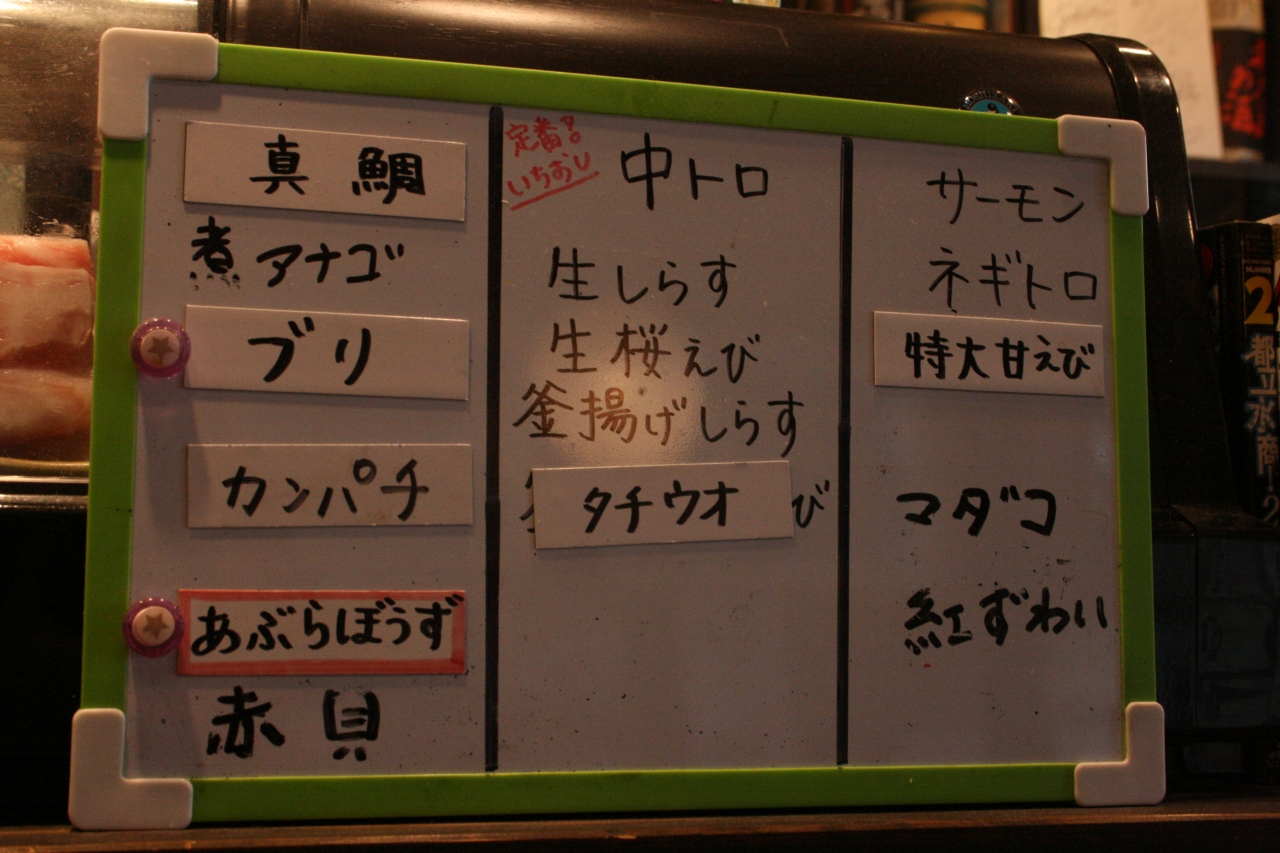 真鯛
煮アナゴ
ブリ
カンパチ
あぶらぼうず
赤貝
定番!
いちおし
中トロ
生しらす
生桜えび
釜揚げしらす
タチウオ
び
サーモン
ネギトロ
特大甘えび
マダコ
紅ずわい
都立水商!